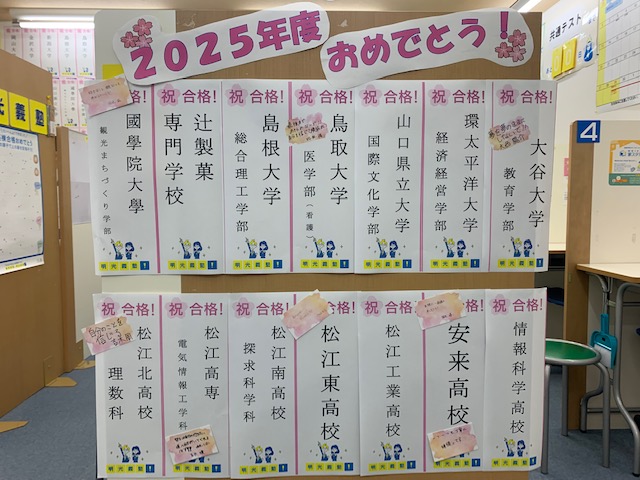 2025年度 おめでとう!
祝 合格!
國學院大學
観光まちづくり学部
明光義塾!
祝 合格!
辻製菓
専門学校
明光義塾!
祝 合格!
島根大学
総合理工学部
明光義塾!
祝 合格!
鳥取大学
医学部(看護)
明光義塾!
祝 合格!
山口県立大学
国際文化学部
明光義塾!
祝 合格!
環太平洋大学
経済経営学部
明光義塾!
祝 合格!
大谷大学
教育学部
明光義塾!
祝 合格!
松江北高校
理数科
自分のことを
信じる
明光義塾!
祝 合格!
松江高専
電気情報工学科
祝 合格!
松江南高校
探求科学科
明光義塾!
祝 合格!
松江東高校
明光義塾!
祝 合格!
松江工業高校
明光義塾!
合格!
安来高校
明光義塾!
祝 合格!
情報科学高校
明光義塾!
光義塾
共通テスト
4